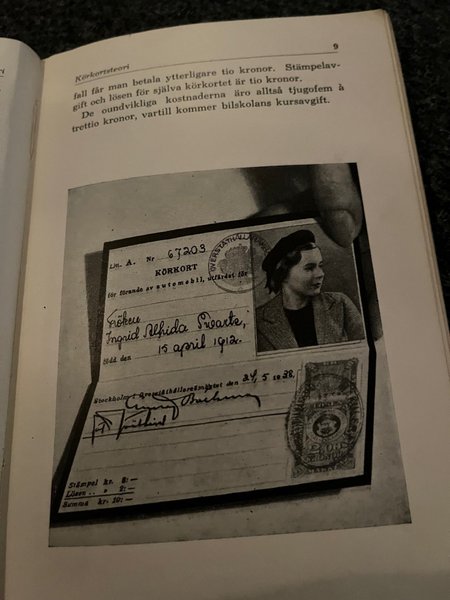 Körkortsteori
9
fall får man betala ytterligare tio kronor. Stämpelav-
gift och lösen för själva körkortet är tio kronor.
De oundvikliga kostnaderna äro alltså tjugofem à
trettio kronor, vartill kommer bilskolans kursavgift.
Litt. A. Nr 67203
KÖRKORT
för förande av automobil, utfärdat för
Fröken
Ingrid Alfrida Swartz,
född den 15 april 1912.
Stockholm i Överståthållareämbetet den 24/5 1938.
Stämpel kr. 8:—
Lösen .. » 2:—
Summa kr. 10:—